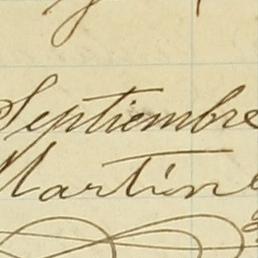 Septiembre
Martine